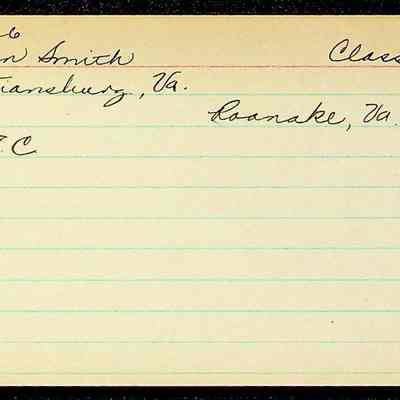 6
n Smith Class
iansburg, Va.
Roanoke, Va.
C